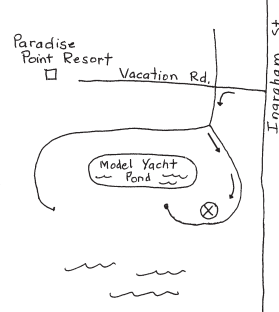 Paradise
Point Resort
Vacation Rd.
Ingraham St
Model Yacht
Pond
X